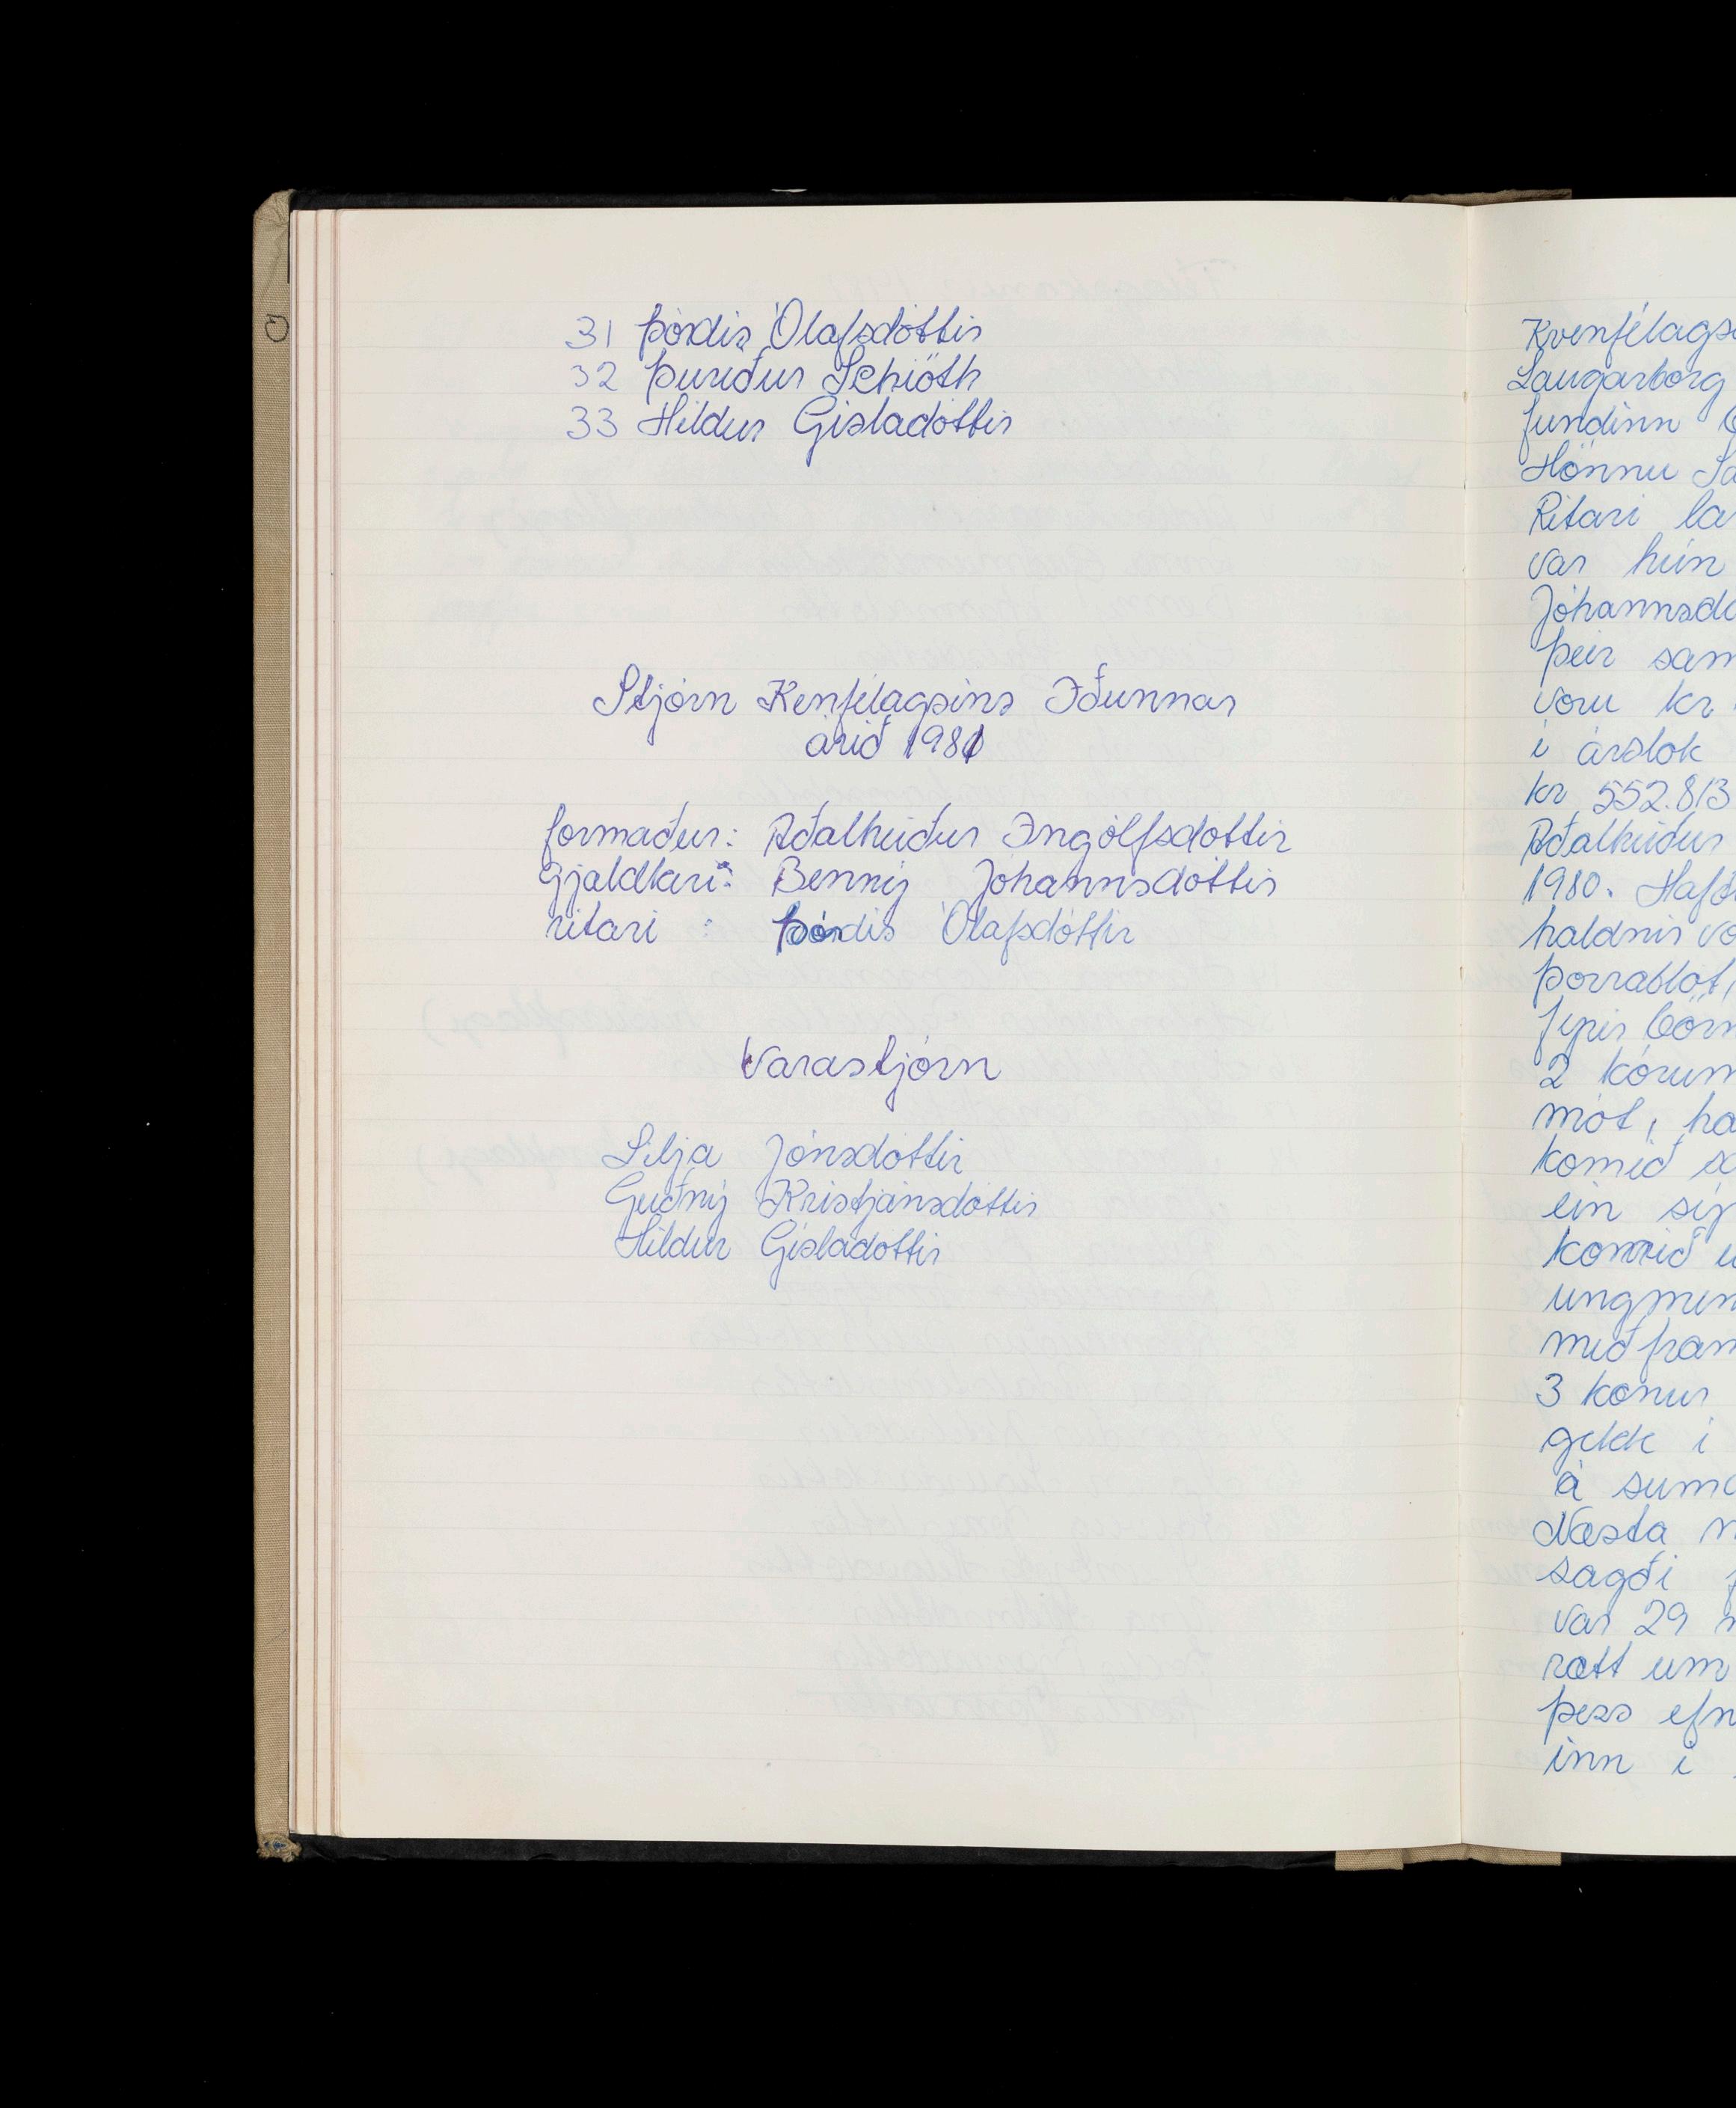 31 Þórdís Ólafsdóttir
32 Þuríður Schiöth
33 Hildur Gísladóttir
Stjórn Kenfélagsins Iðunnar
árið 1981
formaður: Aðalheiður Ingólfsdóttir
Gjaldkeri: Benný Jóhannsdóttir
ritari : Þórdís Ólafsdóttir
Varastjórn
Lilja Jónsdóttir
Guðný Kristjánsdóttir
Hildur Gísladóttir
Kvenfélags
Laugarborg
fundinn
Hönnu
Ritari
var hún
Jóhannsdó
þeir sam
voru kr
í árslok
kr 552.813
Aðalheiður
1980.
haldnir
þorrablót,
fyrir börn
2 kórum
mót, ha
komið
ein
komið
ungmen
með fram
3 konur
gekk í
á suma
Næsta
sagði
var 29
rætt um
þess efn
inn í